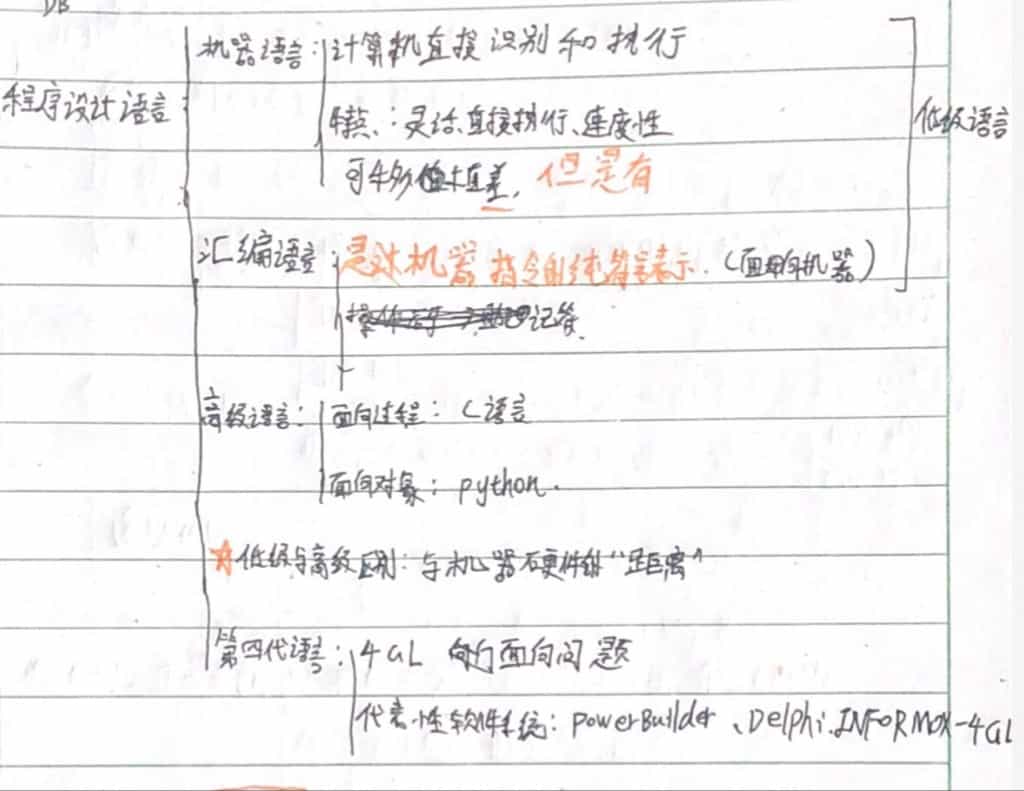 DB
程序设计语言：
机器语言：计算机直接识别和执行
特点：灵活、直接执行、速度性
可移植性差，但是有
低级语言
汇编语言：是对机器指令的纯符号表示．（面向机器）
记符．
高级语言：面向过程：C语言
面向对象：python．
☆低级与高级区别：与机器硬件的“距离”
第四代语言：4GL 面向问题
代表性软件系统：powerBuilder、Delphi．INFORMOX-4GL